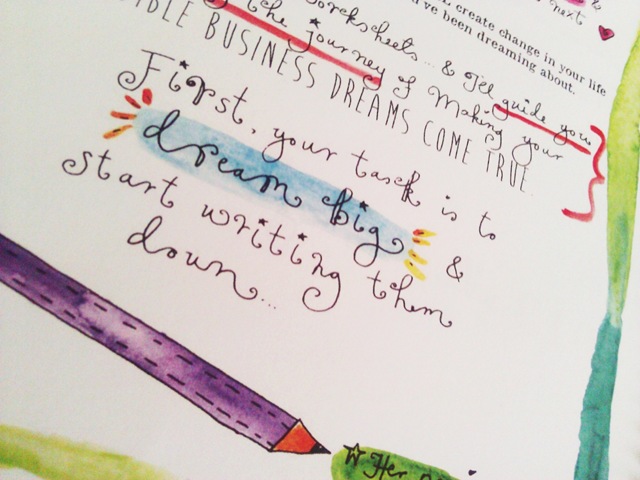 next &
create change in your life
've been dreaming about.
worksheets... & I'll guide you
the journey of making your
BUSINESS DREAMS COME TRUE.
First, your task is to
dream big &
start writing them
down...
Her